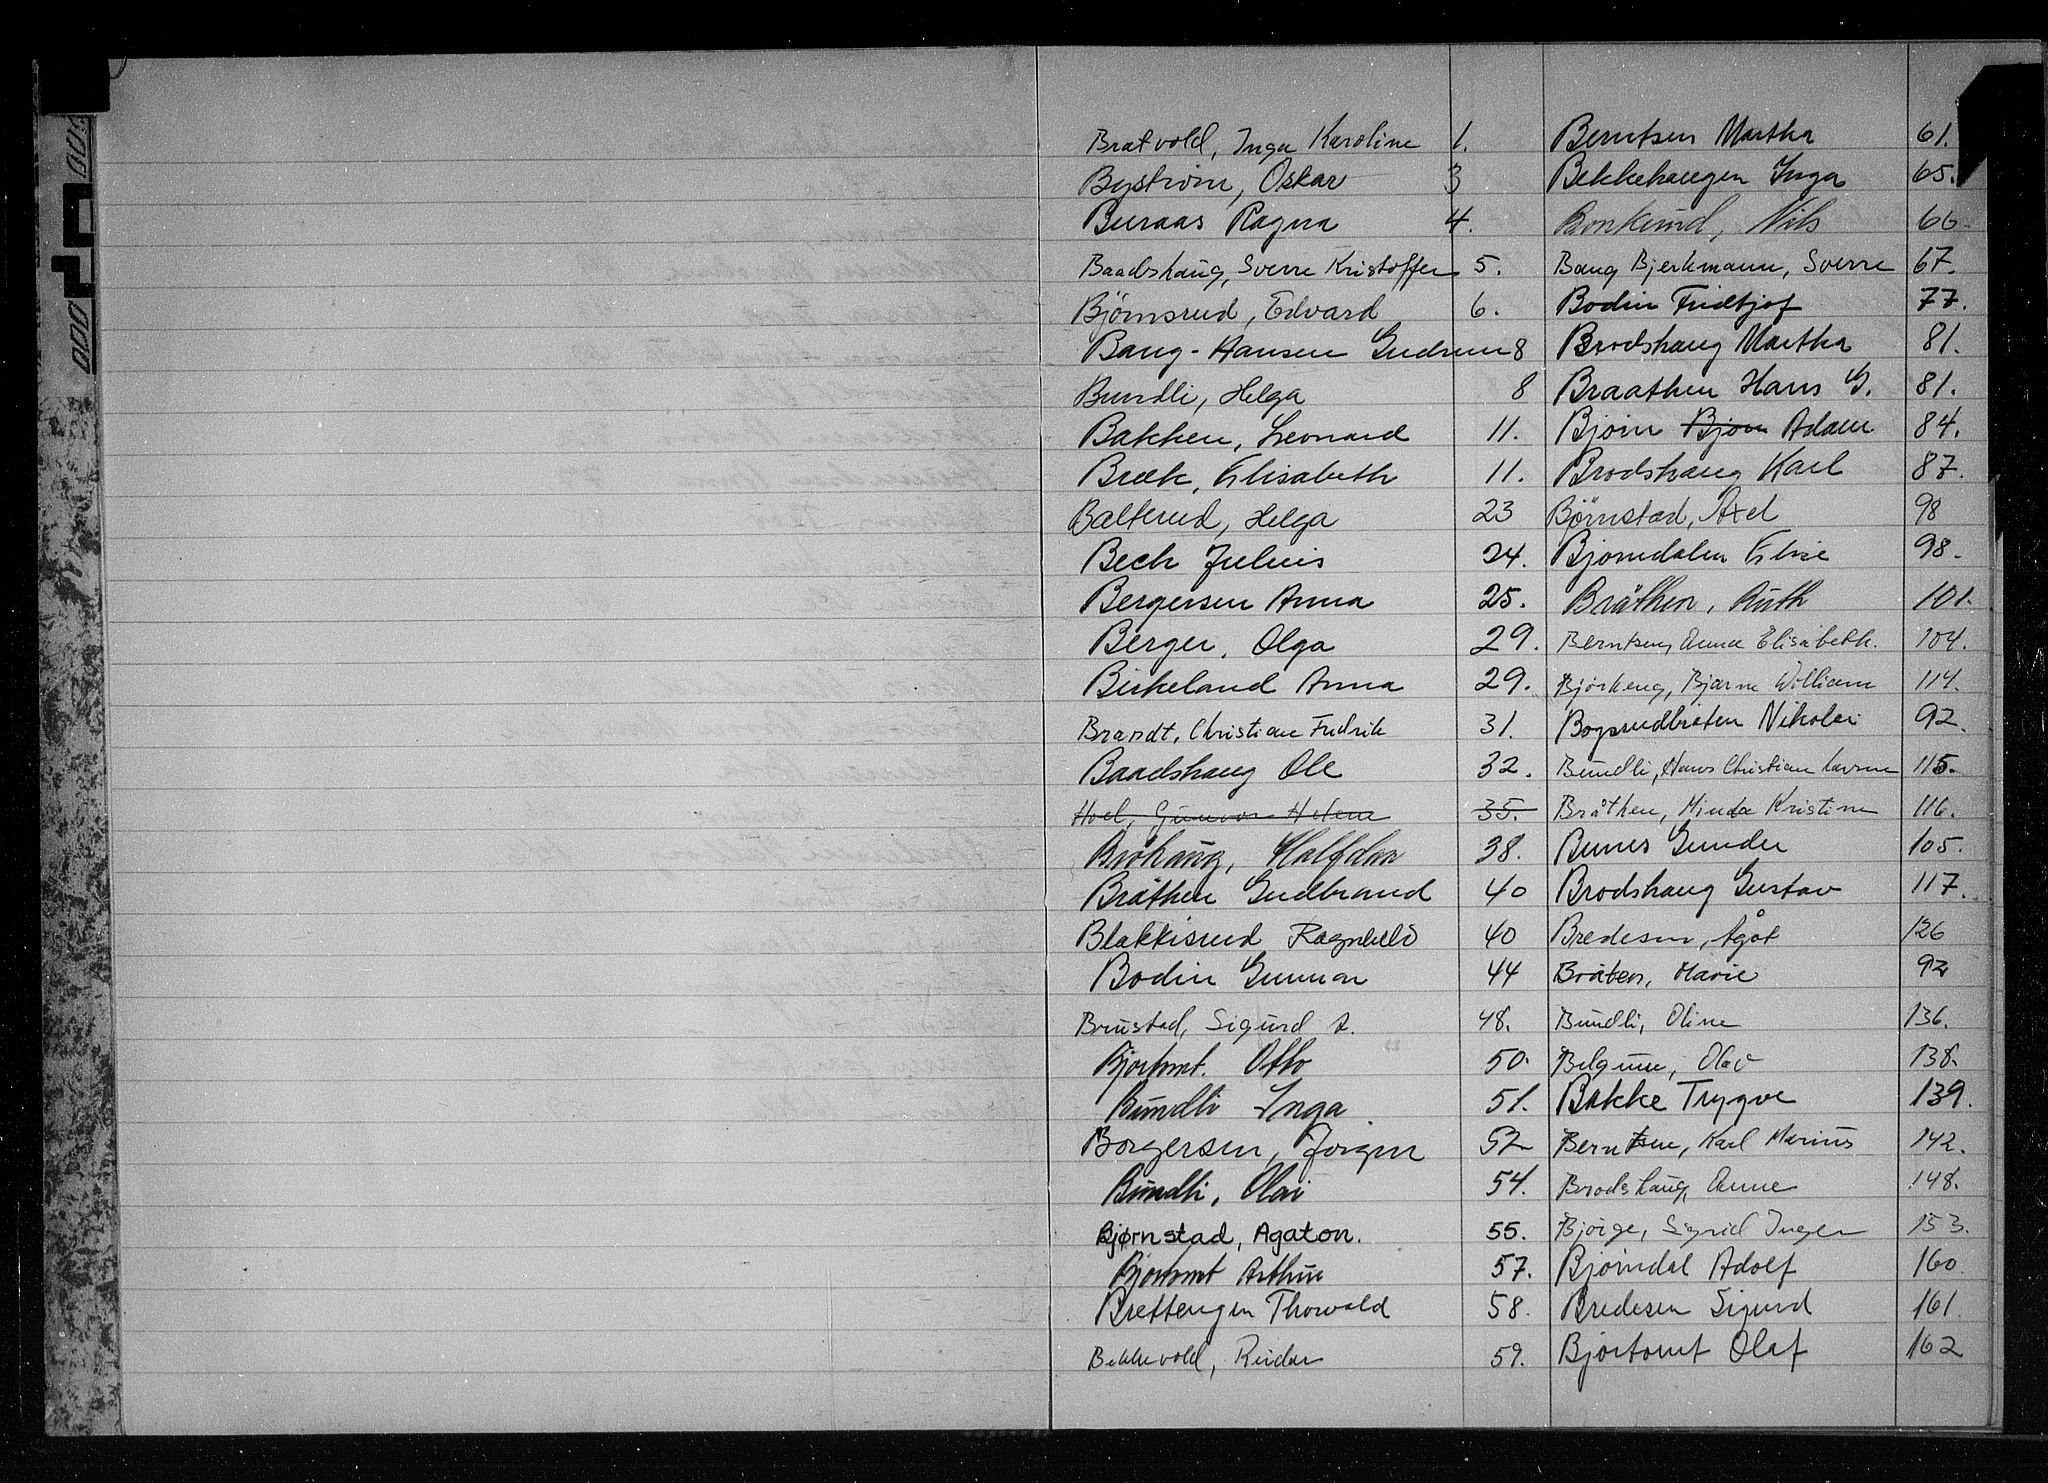 Bratvold, Inga Karoline 1.
Byström, Oskar 3
Buraas Ragna 4.
Baadshaug, Sverre Kristoffer 5.
Björnsrud, Edvard 6.
Baug-Hansen Gudrun 8
Bundli, Helga 8
Bakken, Leonard 11.
Bræk, Elisabeth 11.
Balterud, Helga 23
Bech Julius 24.
Bergersen Anna 25.
Berger, Olga 29.
Birkeland Anna 29.
Brandt, Christian Fredrik 31.
Baadshaug Ole 32.
Hoel, Gunvor Helene 35.
Brohaug, Halfdan 38.
Bråthen Gudbrand 40
Blakkisrud Ragnhild 40
Bodin Gunnar 44
Brustad, Sigurd A. 48.
Bjørtomt. Otto 50.
Bundli Inga 51.
Borgersen, Jörgen 52
Bundli, Olai 54.
Bjørnstad, Agaton. 55.
Bjørtomt Arthur 57.
Brettengen Thorvald 58.
Bekkevold, Reidar 59.
Berntsen Martha 61.
Bekkehaugen Inga 65.
Nils 66.
Baug Bjerkmann, Sverre 67.
Bodin Fridtjof 77.
Brodshaug Martha 81.
Braathen Hans G. 81.
Bjørn Bjørn Adam 84.
Brodshaug Karl 87.
Bjørnstad, Axel 98
Bjørndalen Elise 98.
Bråthen, Ruth 101.
Berntsen, Anna Elisabeth. 104.
Bjørkeng, Bjarne William 114.
Bogsrudbråten Nikolai 92.
Bundli, Hans Christian Laurin 115.
Bråthen, Minda Kristine 116.
Bunes Gunder 105.
Brodshaug Gustav 117.
Bredesen, Ågot 126
Bråten, Marie 92
Bundli, Oline 136.
Belgum, Olav 138.
Bakke Trygve 139.
Berntsen, Karl Marius 142.
Brodshaug, Anne 148.
Bjørge, Sigrid Inger 153.
Bjørndal Adolf 160
Bredesen Sigurd 161.
Bjørtomt Olaf 162